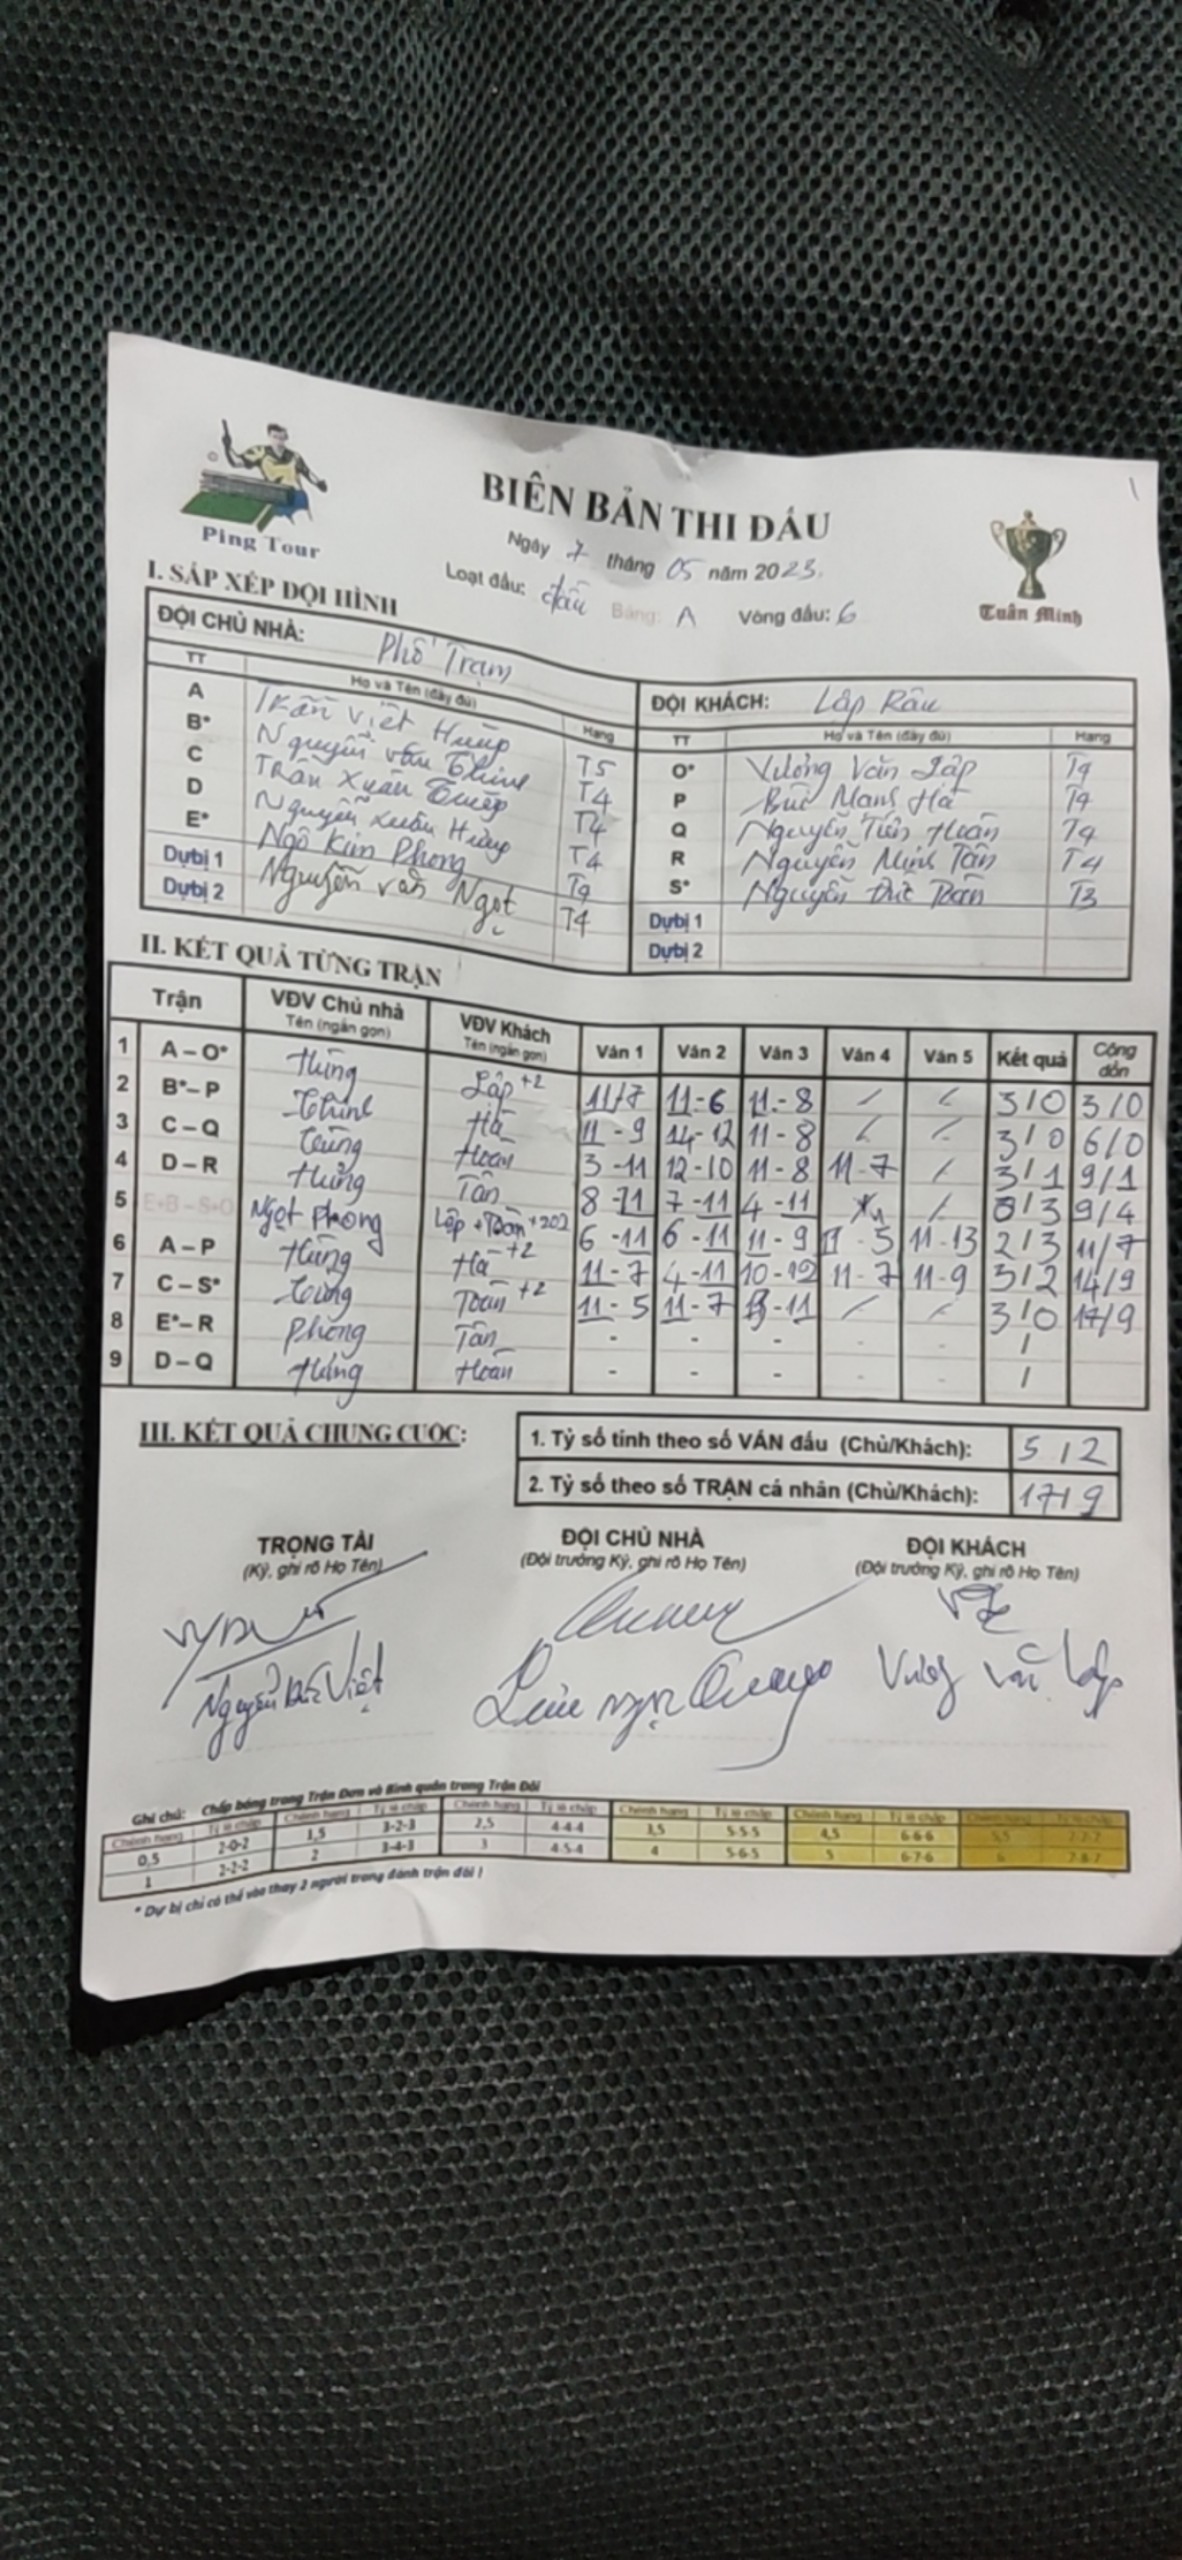 Ping Tour
BIÊN BẢN THI ĐẤU
Ngày 7 tháng 05 năm 2023.
Loạt đấu: đấu Bảng: A Vòng đấu: 6
Tuấn Minh
I. SẮP XẾP ĐỘI HÌNH
ĐỘI CHỦ NHÀ: Phố Trạm
TT Họ và Tên (đầy đủ) Hạng
A Trần Việt Hùng T5
B* Nguyễn Văn T4
C Trần Xuân T4
D Nguyễn Xuân Hùng T4
E* Ngô Kim Phong T9
Dựbị 1 Nguyễn Văn Ngọt T4
Dựbị 2
ĐỘI KHÁCH: Lập Râu
TT Họ và Tên (đầy đủ) Hạng
O* Vương Văn Lập T4
P Bùi Mạnh Hà T4
Q Nguyễn Tiến Hoàn T4
R Nguyễn Minh Tân T4
S* Nguyễn Đức Toàn T3
Dựbị 1
Dựbị 2
II. KẾT QUẢ TỪNG TRẬN
Trận VĐV Chủ nhà Tên (ngắn gọn) VĐV Khách Tên (ngắn gọn) Ván 1 Ván 2 Ván 3 Ván 4 Ván 5 Kết quả Cộng dồn
1 A – O* Hùng Lập +2 11/7 11-6 11-8 / / 3/0 3/0
2 B* – P Hà 11-9 14-12 11-8 / / 3/0 6/0
3 C – Q Hoàn 3-11 12-10 11-8 11-7 / 3/1 9/1
4 D – R Hùng Tân 8-11 7-11 4-11 / 0/3 9/4
5 E+B – S+O Ngọt Phong Lập + Toàn +202 6-11 6-11 11-9 11-5 11-13 2/3 11/7
6 A – P Hùng Hà +2 11-7 4-11 10-12 11-7 11-9 3/2 14/9
7 C – S* Toàn +2 11-5 11-7 -11 / / 3/0 17/9
8 E* – R Phong Tân - - - - - /
9 D – Q Hùng Hoàn - - - - - /
III. KẾT QUẢ CHUNG CUỘC:
1. Tỷ số tính theo số VÁN đấu (Chủ/Khách): 5/2
2. Tỷ số theo số TRẬN cá nhân (Chủ/Khách): 17/9
TRỌNG TÀI
(Ký, ghi rõ Họ Tên)
ĐỘI CHỦ NHÀ
(Đội trưởng Ký, ghi rõ Họ Tên)
ĐỘI KHÁCH
(Đội trưởng Ký, ghi rõ Họ Tên)
Nguyễn Đức Việt
Lưu Ngọc Quang
Vương Văn Lập
Ghi chú: Chấp bóng trong Trận Đơn và Bình quân trong Trận Đôi
Chênh hạng Tỷ lệ chấp Chênh hạng Tỷ lệ chấp Chênh hạng Tỷ lệ chấp Chênh hạng Tỷ lệ chấp Chênh hạng Tỷ lệ chấp Chênh hạng Tỷ lệ chấp
0,5 2-0-2 1,5 3-2-3 2,5 4-4-4 3,5 5-5-5 4,5 6-6-6 5,5 7-7-7
1 2-2-2 2 3-4-3 3 4-5-4 4 5-6-5 5 6-7-6 6 7-8-7
* Dự bị chỉ có thể vào thay 2 người trong đánh trận đôi !